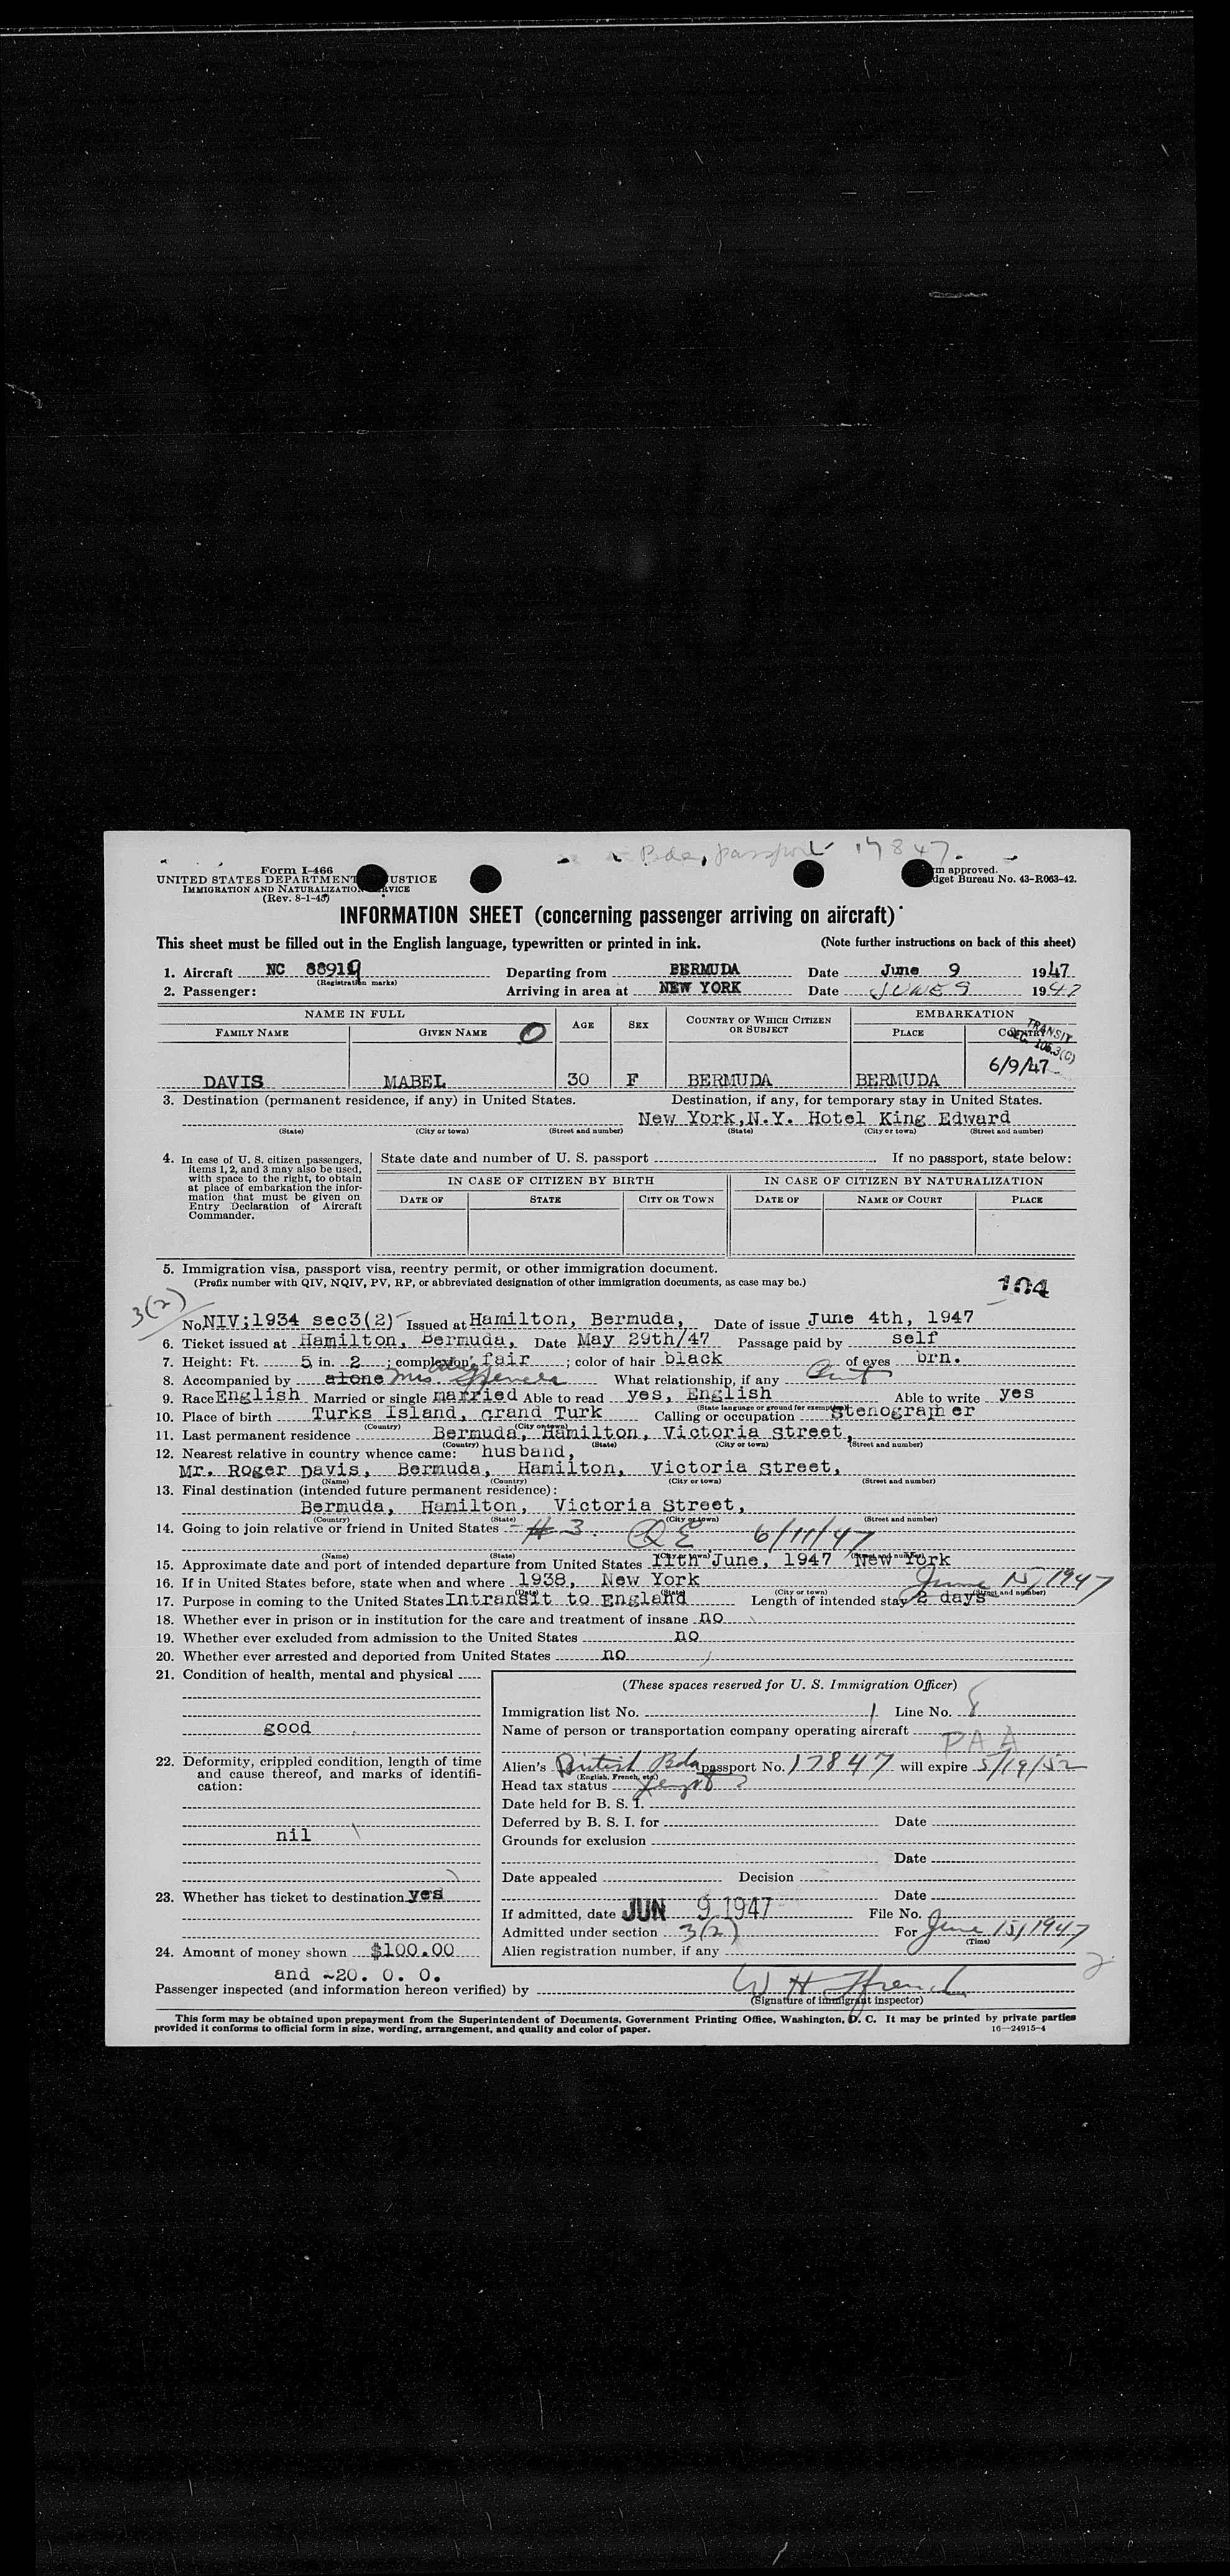 Bda, passport 17847.
Form I-466
UNITED STATES DEPARTMENT JUSTICE
IMMIGRATION AND NATURALIZATION SERVICE
(Rev. 8-1-45)
m approved.
dget Bureau No. 43-R063-42.
INFORMATION SHEET (concerning passenger arriving on aircraft)
This sheet must be filled out in the English language, typewritten or printed in ink. (Note further instructions on back of this sheet)
1. Aircraft NC 88919 Departing from BERMUDA Date June 9 1947
(Registration marks)
2. Passenger: Arriving in area at NEW YORK Date JUNE 9 1947
NAME IN FULL AGE SEX COUNTRY OF WHICH CITIZEN OR SUBJECT EMBARKATION
FAMILY NAME GIVEN NAME PLACE COUNTRY
TRANSIT
SEC. 106.3(C)
6/9/47
DAVIS MABEL 30 F BERMUDA BERMUDA
3. Destination (permanent residence, if any) in United States. Destination, if any, for temporary stay in United States.
New York,N.Y. Hotel King Edward
(State) (City or town) (Street and number) (State) (City or town) (Street and number)
4. In case of U. S. citizen passengers, items 1, 2, and 3 may also be used, with space to the right, to obtain at place of embarkation the information that must be given on Entry Declaration of Aircraft Commander.
State date and number of U. S. passport If no passport, state below:
IN CASE OF CITIZEN BY BIRTH IN CASE OF CITIZEN BY NATURALIZATION
DATE OF STATE CITY OR TOWN DATE OF NAME OF COURT PLACE
5. Immigration visa, passport visa, reentry permit, or other immigration document.
(Prefix number with QIV, NQIV, PV, RP, or abbreviated designation of other immigration documents, as case may be.)
104
3(2)
No. NIV;1934 sec3(2) Issued at Hamilton, Bermuda, Date of issue June 4th, 1947
6. Ticket issued at Hamilton, Bermuda, Date May 29th/47 Passage paid by self
7. Height: Ft. 5 in. 2 ; complexion; fair ; color of hair black of eyes brn.
8. Accompanied by alone Mrs. Spencer What relationship, if any Aunt
9. Race English Married or single married Able to read yes, English Able to write yes
(State language or ground for exemption)
10. Place of birth Turks Island, Grand Turk Calling or occupation Stenographer
(Country) (City or town)
11. Last permanent residence Bermuda, Hamilton, Victoria street,
(Country) (State) (City or town) (Street and number)
12. Nearest relative in country whence came: husband,
Mr. Roger Davis, Bermuda, Hamilton, Victoria street,
(Name) (Country) (City or town) (Street and number)
13. Final destination (intended future permanent residence):
Bermuda, Hamilton, Victoria Street,
(Country) (State) (City or town) (Street and number)
14. Going to join relative or friend in United States #3. QE 6/11/47
(Name) (State) (City or town) (Street and number)
15. Approximate date and port of intended departure from United States 11th June, 1947 New York
16. If in United States before, state when and where 1938, New York June 15, 1947
(Date) (State) (City or town) (Street and number)
17. Purpose in coming to the United States Intransit to England Length of intended stay 2 days
18. Whether ever in prison or in institution for the care and treatment of insane no
19. Whether ever excluded from admission to the United States no
20. Whether ever arrested and deported from United States no
21. Condition of health, mental and physical
good
22. Deformity, crippled condition, length of time and cause thereof, and marks of identification:
nil
23. Whether has ticket to destination yes
24. Amount of money shown $100.00
and ~20. 0. 0.
(These spaces reserved for U. S. Immigration Officer)
Immigration list No. 1 Line No. 8
Name of person or transportation company operating aircraft
PAA
Alien's British Bda passport No. 17847 will expire 5/19/52
(English, French, etc.)
Head tax status
Date held for B. S. I.
Deferred by B. S. I. for Date
Grounds for exclusion
Date
Date appealed Decision
Date
If admitted, date JUN 9 1947 File No.
Admitted under section 3(2) For June 15, 1947
(Time)
Alien registration number, if any
2
Passenger inspected (and information hereon verified) by W H Ffrench
(Signature of immigrant inspector)
This form may be obtained upon prepayment from the Superintendent of Documents, Government Printing Office, Washington, D. C. It may be printed by private parties
provided it conforms to official form in size, wording, arrangement, and quality and color of paper. 16—24915-4